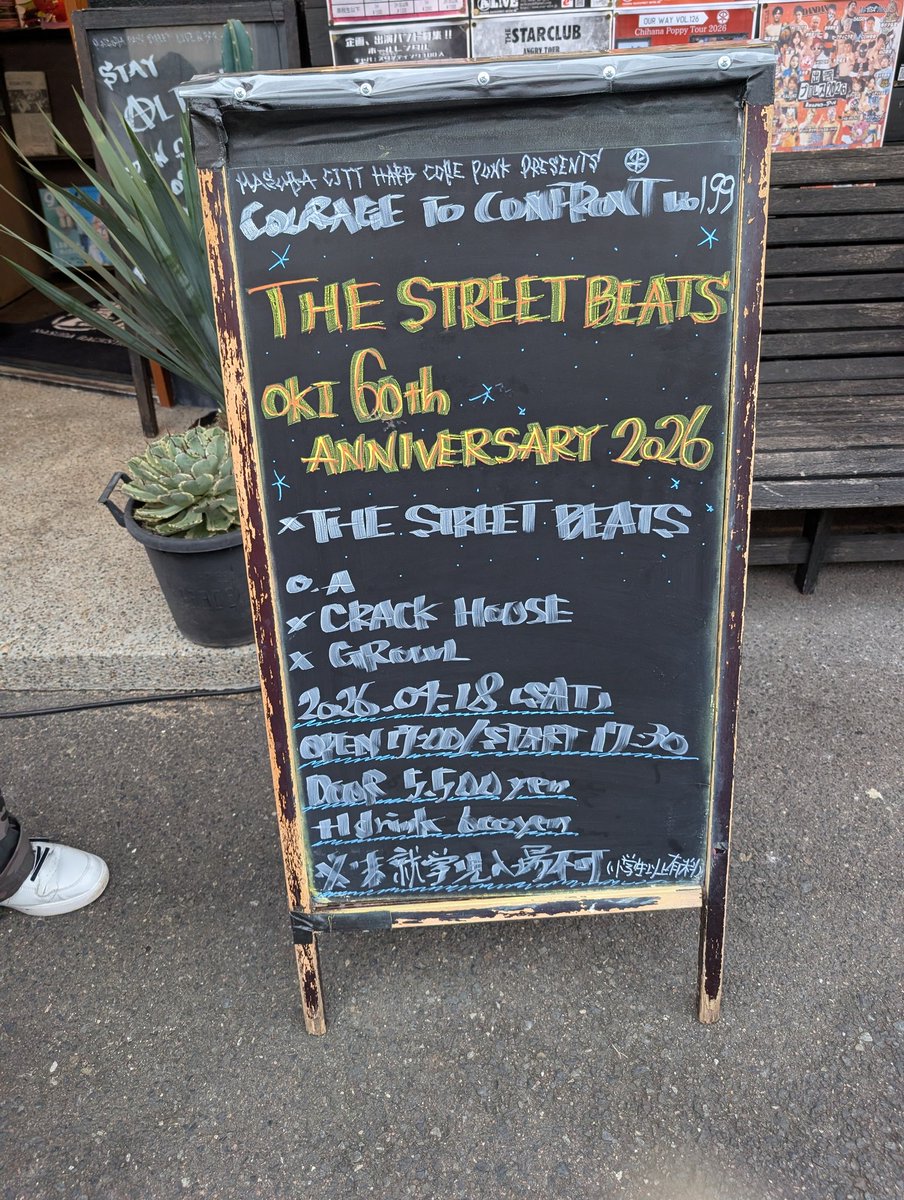 企画、出演バンド募集!!
THE STARCLUB
ANGRY TOUR
OUR WAY VOL.126
Chihana Poppy Tour 2026
STAY
MASUDA CITY HARD CORE PUNK PRESENTS
COURAGE TO CONFRONT vol 99
THE STREET BEATS
OKI 60th
ANNIVERSARY 2026
×THE STREET BEATS
O.A
× CRACK HOUSE
× GROWL
2026.04.18 (SAT)
OPEN 17:00/START 17:30
DOOR 5.500 yen
+1drink 600yen
※未就学児入場不可 (小学生以上有料)